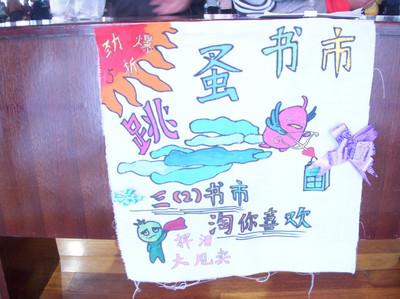 劲爆
5折
跳蚤书市
三(2)书市
淘你喜欢
大甩卖